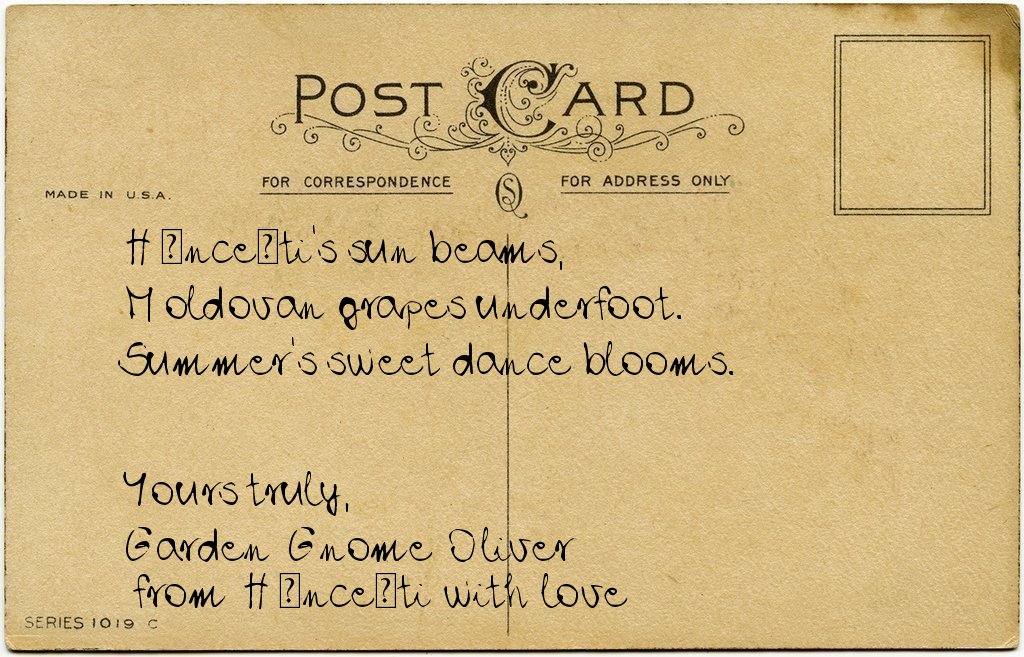 POST CARD
FOR CORRESPONDENCE
FOR ADDRESS ONLY
MADE IN U.S.A.
H�nce�ti's sun beams,
Moldovan grapes underfoot.
Summer's sweet dance blooms.
Yours truly,
Garden Gnome Oliver
from H�nce�ti with love
SERIES 1019 C